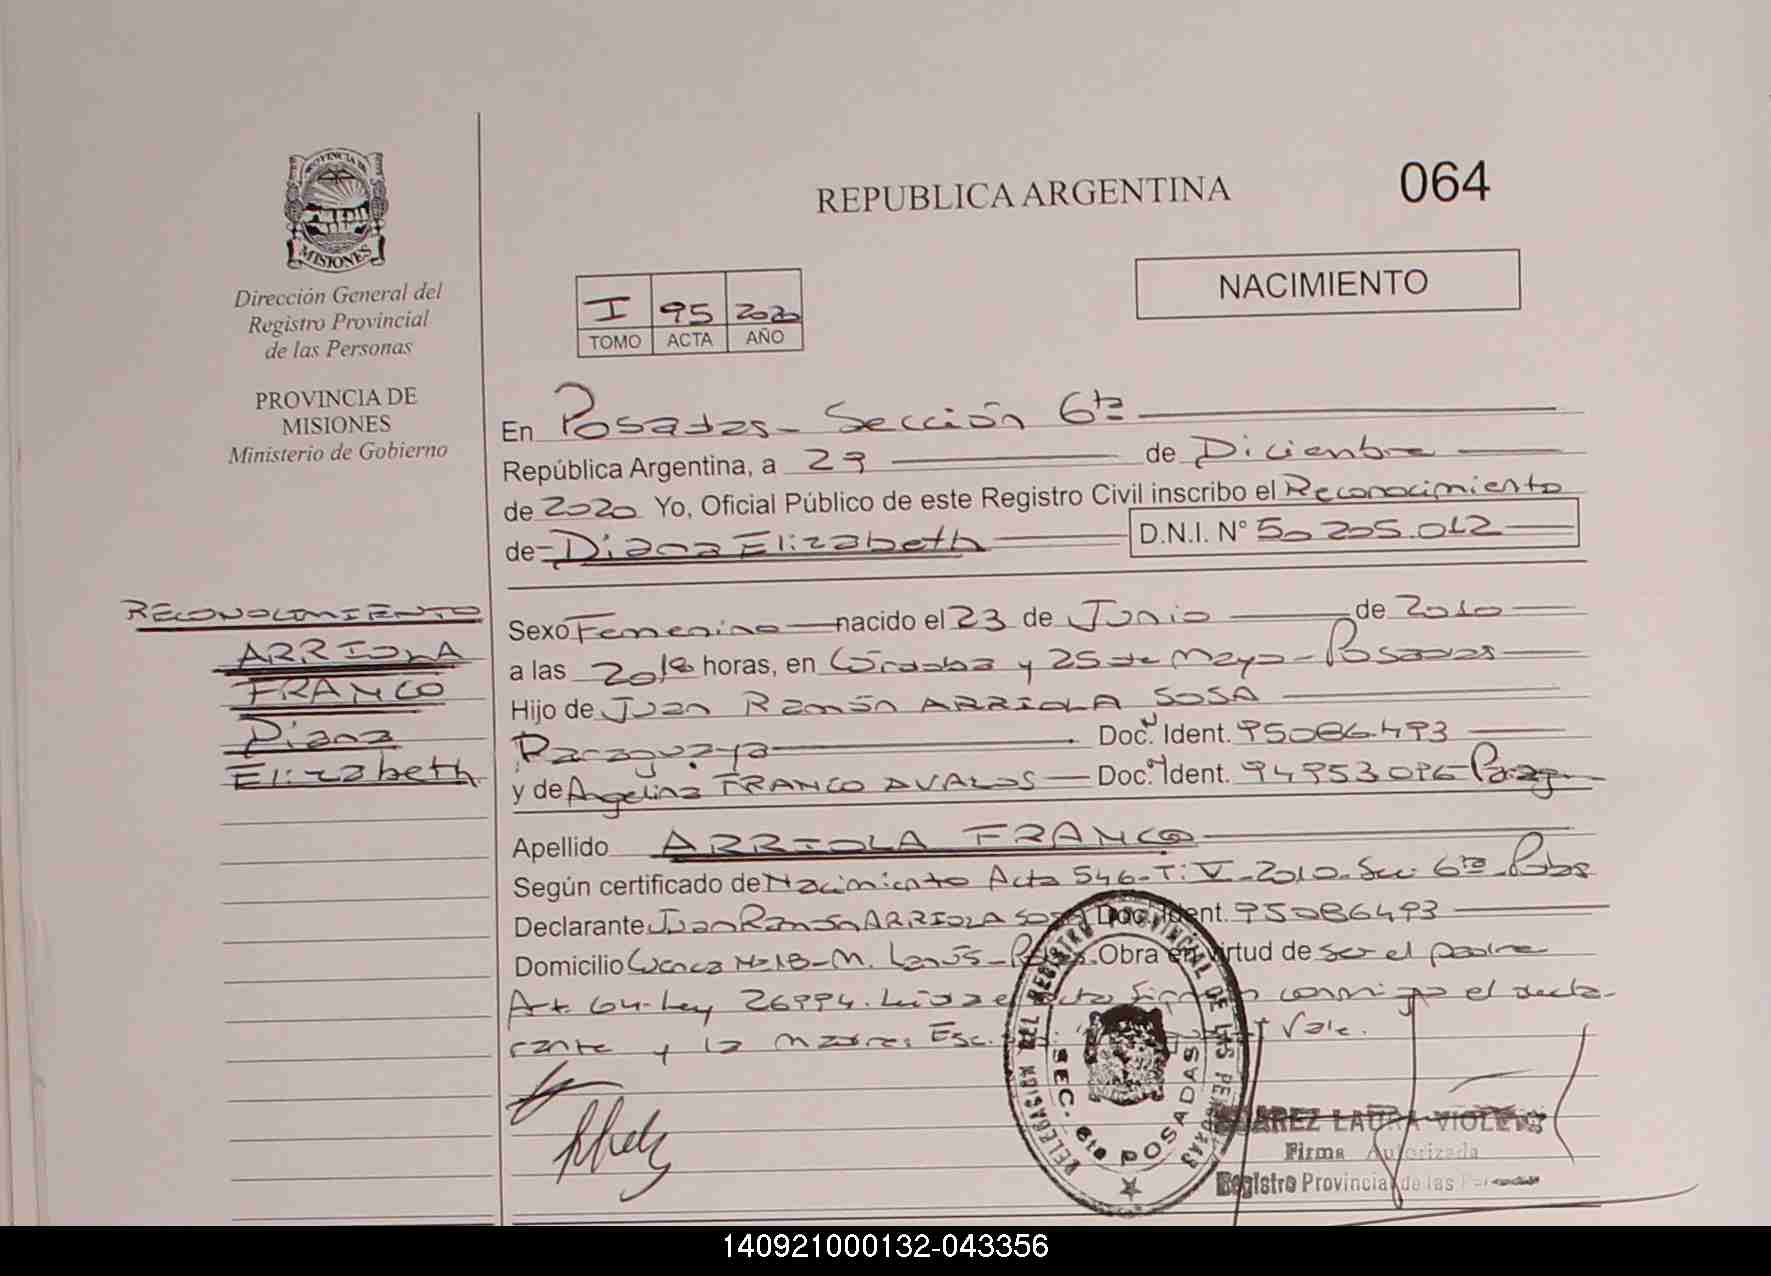 PROVINCIA DE
MISIONES
Dirección General del
Registro Provincial
de las Personas
PROVINCIA DE
MISIONES
Ministerio de Gobierno
RECONOCIMIENTO
ARRIOLA
FRANCO
Diana
Elizabeth
REPUBLICA ARGENTINA
064
NACIMIENTO
I 95 2020
TOMO ACTA AÑO
En Posadas - Sección 6ta
República Argentina, a 29 de Diciembre
de 2020 Yo, Oficial Público de este Registro Civil inscribo el Reconocimiento
de Diana Elizabeth D.N.I. N° 50 205.012
Sexo Femenino nacido el 23 de Junio de 2010
a las 20,18 horas, en Córdoba y 25 de Mayo - Posadas
Hijo de Juan Ramón ARRIOLA SOSA
Paraguaya Doc. Ident. 95086493
y de Angelina FRANCO AVALOS Doc. Ident. 94953096 - Parag
Apellido ARRIOLA FRANCO
Según certificado de Nacimiento Acta 546 - T: V - 2010 - Sec. 6ta - Pdas
Declarante Juan Ramón ARRIOLA SOSA Doc. Ident. 95086493
Domicilio M. Lanús - Obra en virtud de ser el padre
Art. 64 - Ley 26994. Leida el acta firman conmigo el decla-
rante y la madre. Esc. Vale.
DELEGACION DEL REGISTRO PROVINCIAL DE LAS PERSONAS
SEC. 6ta POSADAS
LAURA VIOLETA
Firma Autorizada
Registro Provincial de las
140921000132-043356